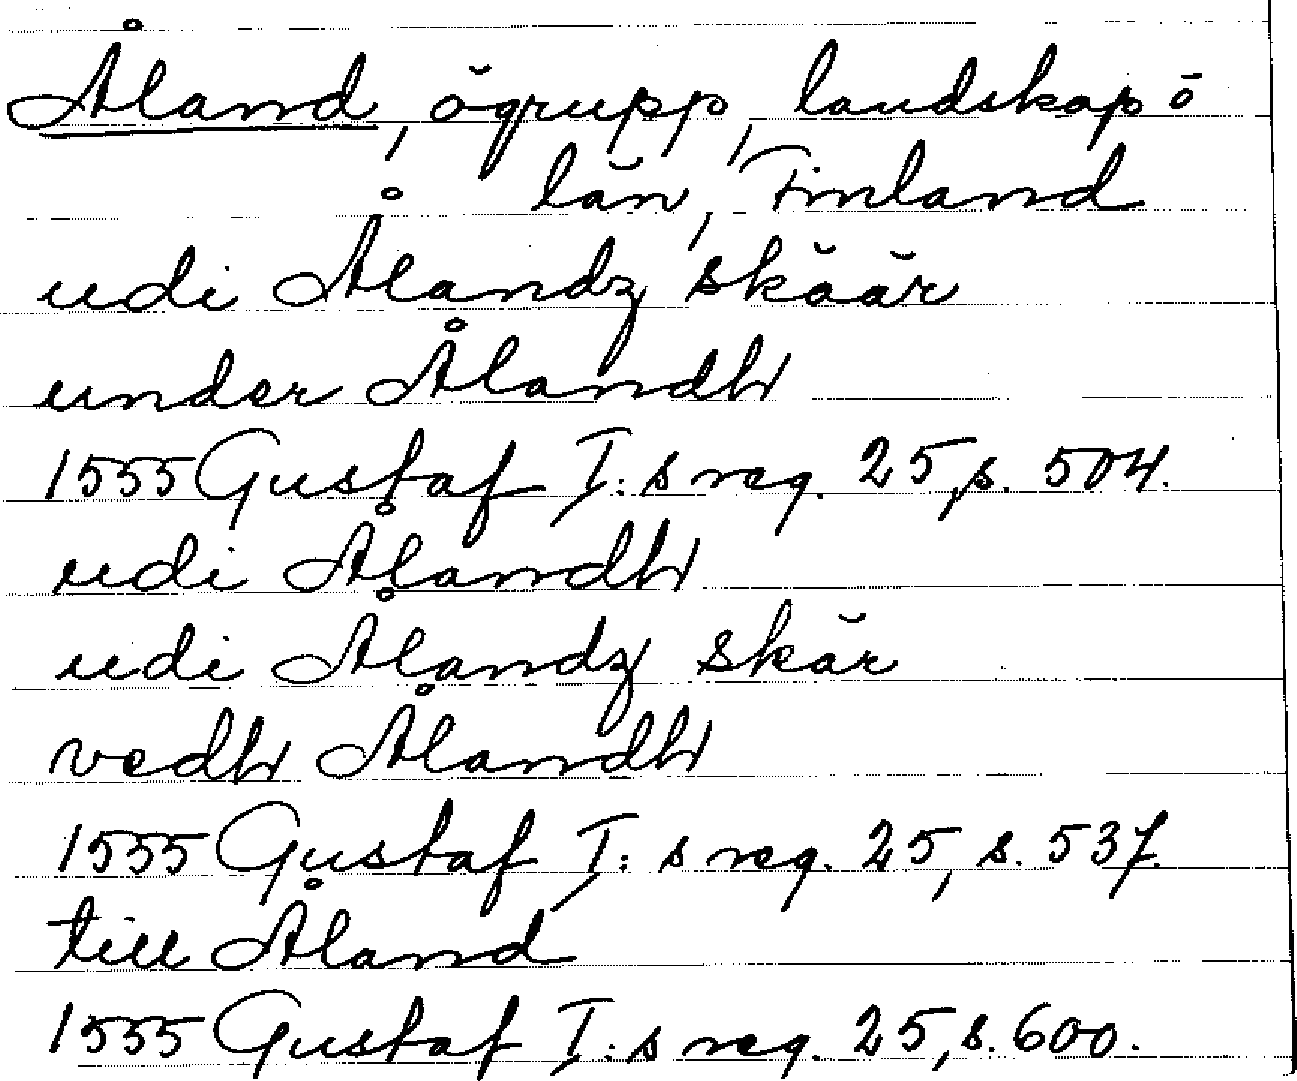 Åland, ögrupp, landskap o
län, Finland
udi Ålandz skäär
under Ålandh
1555 Gustaf I:s reg. 25, s. 504.
udi Ålandh
udi Ålandz skär
vedh Ålandh
1555 Gustaf I:s reg. 25, s. 537.
till Åland
1555 Gustaf I:s reg. 25, s. 600.